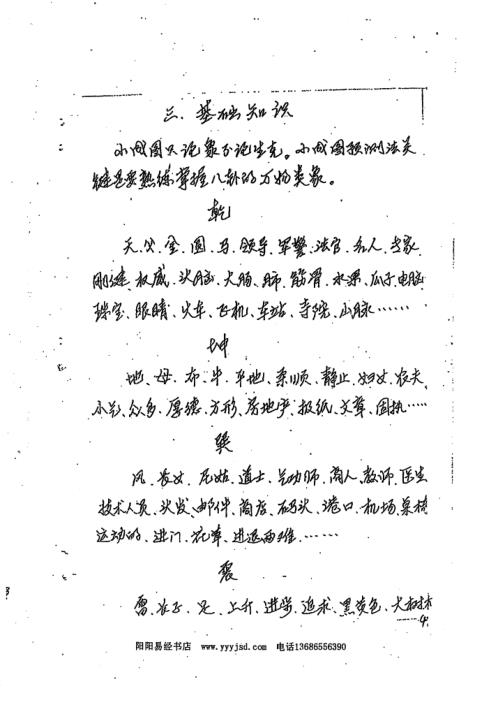 三、基础知识
小成图只论象不论生克。小成图预测法关
键是要熟练掌握八卦的万物类象。
乾
天、父、金、圆、马、领导、军警、法官、名人、专家
刚健、权威、头脑、大肠、肺、筋骨、水果、瓜子、电脑
珠宝、眼睛、火车、飞机、车站、寺院、山脉……
坤
地、母、布、牛、平地、柔顺、静止、妇女、农夫
小人、众多、厚德、方形、房地产、报纸、文章、固执……
巽
风、长女、尼姑、道士、气功师、商人、教师、医生
技术人员、头发、邮件、商店、码头、港口、机场、桌椅
运动的、进门、花草、进退两难、……
震
雷、长子、足、上升、进学、追求、黑黄色、大树林
4
阳阳易经书店 www.yyyjsd.com 电话13686556390